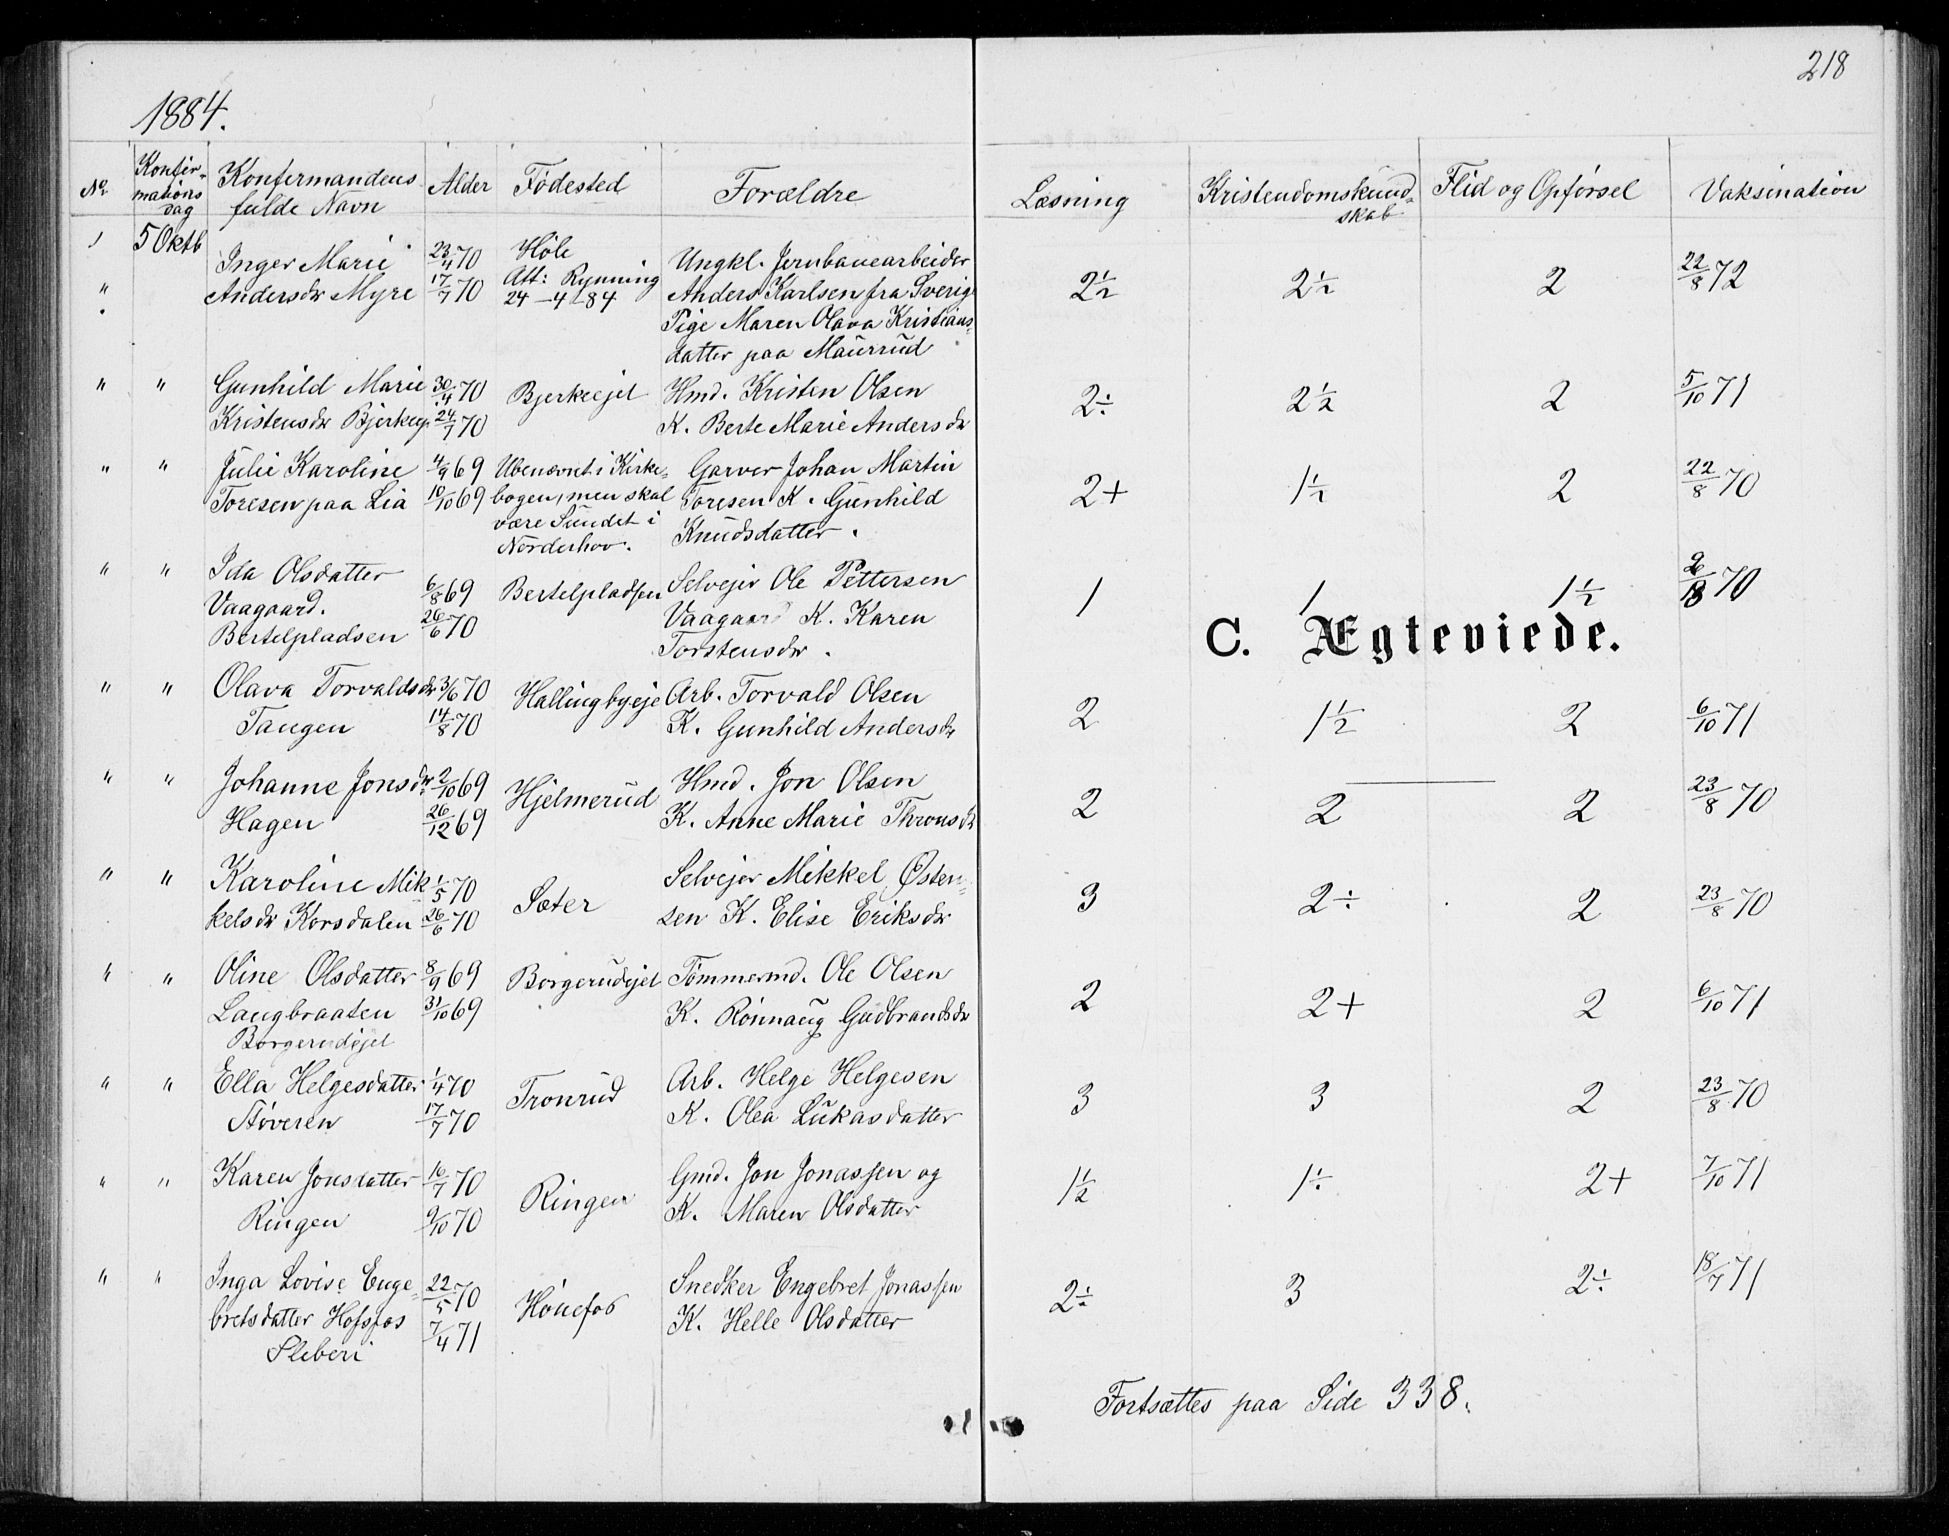 218
1884.
No
Konfir-
mations
dag
Konfirmandens
fulde Navn
Alder
Fødested
Forældre
Læsning
Kristendomskund-
skab
Flid og Opførsel
Vaksination
1 5 Oktb
Inger Marie
Andersdr Myre
23/4 70
17/7 70
Høle
Att: Rynning
24-4-84
Ungkl. Jernbanearbeider
Anders Karlsen fra Sverig
Pige Maren Olava Kristians-
datter paa Maurrud
2½ 2½ 2 22/8 72
" " Gunhild Marie
Kristensdr Bjerkeej.
30/4 70
24/7 70
Bjerkeejet
Hmd. Kristen Olsen
K. Berte Marie Andersdr
2÷ 2½ 2 5/10 71
" " Julie Karoline
Toresen paa Lia
4/9 69
10/10 69
Ubenævnt i Kirke-
bogen, men skal
være Sundet i
Norderhov.
Garver Johan Martin
Toresen K. Gunhild
Knudsdatter.
2+ 1½ 2 22/8 70
" " Ida Olsdatter
Vaagaard.
Bertelpladsen
6/8 69
26/6 70
Bertelpladsen
Selvejer Ole Pettersen
Vaagaard K. Karen
Torstensdr.
1 1 1½ 70
C. Ægteviede.
" " Olava Torvaldsdr
Tangen
3/6 70
14/8 70
Hallingbyeje
Arb. Torvald Olsen
K. Gunhild Andersdr
2 1½ 2 6/10 71
" " Johanne Jonsdr.
Hagen
2/10 69
26/12 69
Hjelmerud
Hmd. Jon Olsen
K. Anne Marie Thronsdr
2 2 2 23/8 70
" " Karoline Mik
kelsdr Korsdalen
1/5 70
26/6 70
Sæter
Selvejer Mikkel Østen-
sen K. Elise Eriksdr
3 2÷ 2 23/8 70
" " Oline Olsdatter
Langbraaten
Borgerudejet
8/9 69
31/10 69
Borgerudejet
Tømmermd. Ole Olsen
K. Rønnaug Gudbrandsdr
2 2+ 2 6/10 71
" " Ella Helgesdatter
Støveren
1/4 70
17/7 70
Tronrud
Arb. Helge Helgesen
K. Olea Lukasdatter
3 3 2 23/8 70
" " Karen Jonsdatter
Ringen
16/7 70
9/10 70
Ringen
Gmd. Jon Jonassen og
K. Maren Olsdatter
1½ 1÷ 2+ 7/10 71
" " Inga Lovise Enge-
bretsdatter Hofsfos
Sleberi
22/5 70
7/4 71
Hønefos
Snedker Engebret Jonassen
K. Helle Olsdatter
2÷ 3 2÷ 18/7 71
Fortsættes paa Side 338.